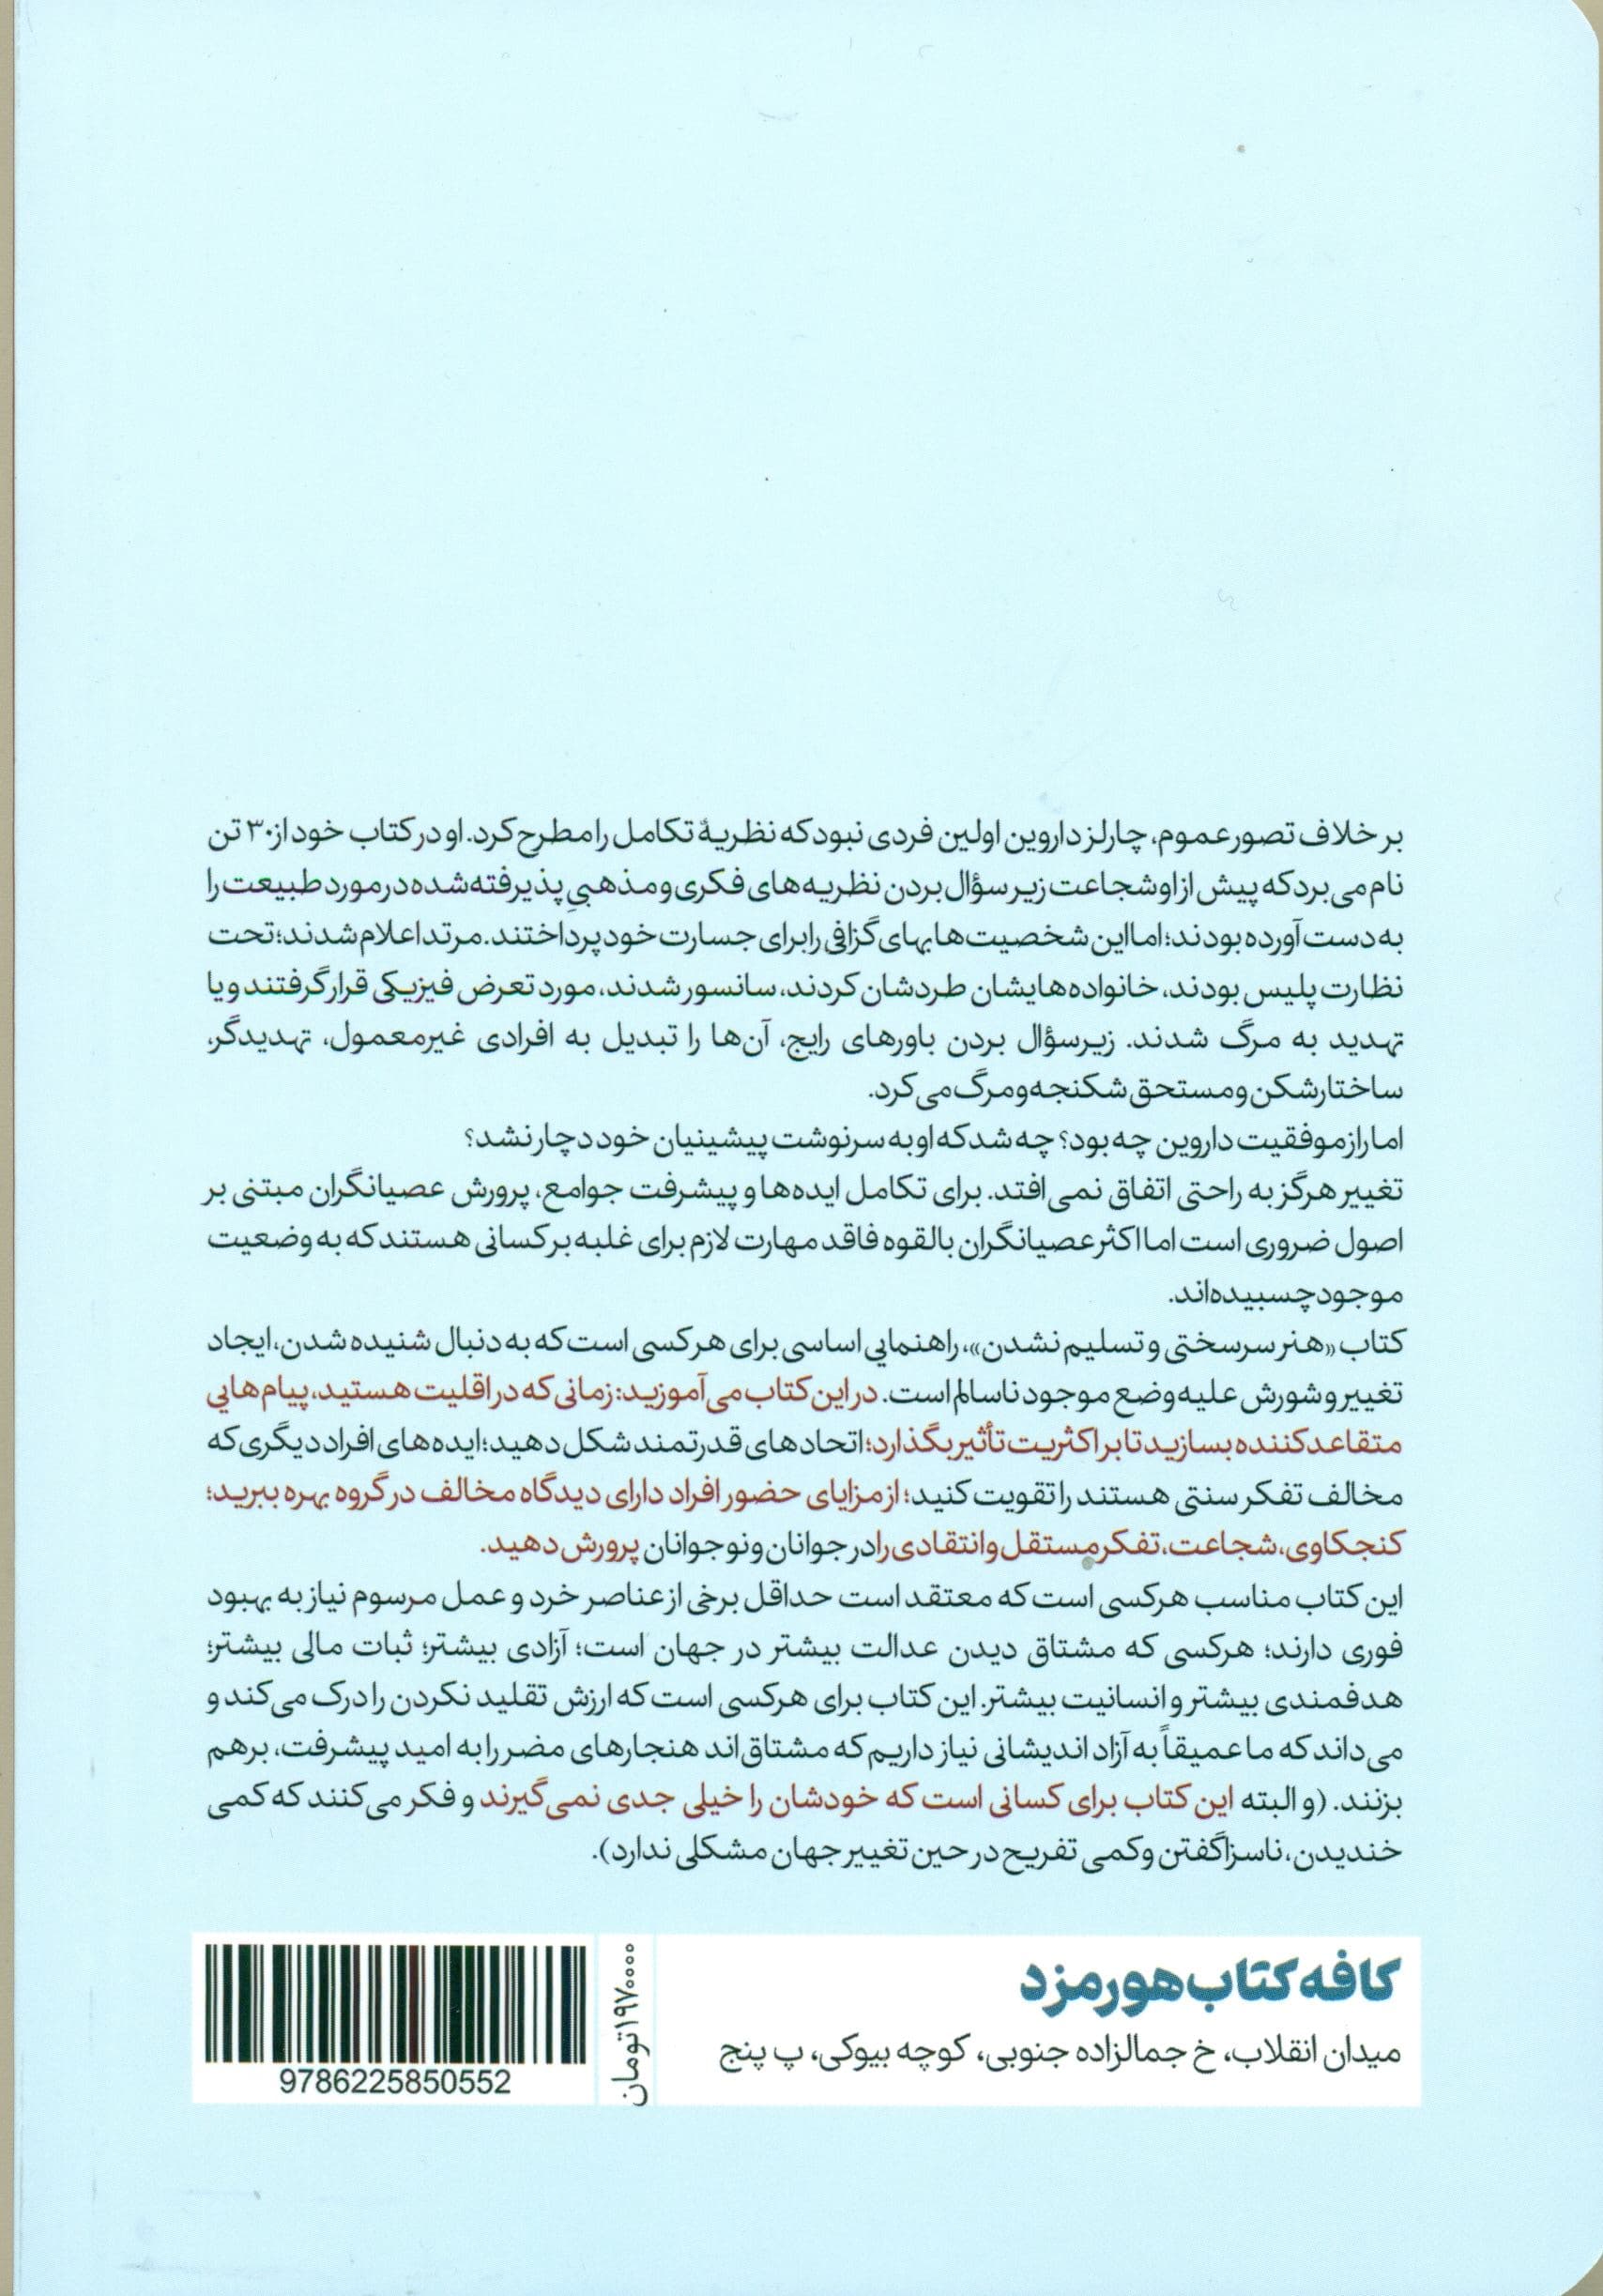 بر خلاف تصور عموم، چارلز داروین اولین فردی نبود که نظریهٔ تکامل را مطرح کرد. او در کتاب خود از ۳۰ تن
نام می‌برد که پیش از او شجاعت زیر سؤال بردن نظریه‌های فکری و مذهبیِ پذیرفته‌شده در مورد طبیعت را
به دست آورده بودند؛ اما این شخصیت‌ها بهای گزافی را برای جسارت خود پرداختند. مرتد اعلام شدند؛ تحت
نظارت پلیس بودند، خانواده‌هایشان طردشان کردند، سانسور شدند، مورد تعرض فیزیکی قرار گرفتند و یا
تهدید به مرگ شدند. زیرسؤال بردن باورهای رایج، آن‌ها را تبدیل به افرادی غیرمعمول، تهدیدگر،
ساختارشکن و مستحق شکنجه و مرگ می‌کرد.
اما راز موفقیت داروین چه بود؟ چه شد که او به سرنوشت پیشینیان خود دچار نشد؟
تغییر هرگز به راحتی اتفاق نمی‌افتد. برای تکامل ایده‌ها و پیشرفت جوامع، پرورش عصیانگران مبتنی بر
اصول ضروری است اما اکثر عصیانگران بالقوه فاقد مهارت لازم برای غلبه بر کسانی هستند که به وضعیت
موجود چسبیده‌اند.
کتاب «هنر سرسختی و تسلیم نشدن»، راهنمایی اساسی برای هرکسی است که به دنبال شنیده شدن، ایجاد
تغییر و شورش علیه وضع موجود ناسالم است. در این کتاب می‌آموزید: زمانی که در اقلیت هستید، پیام‌هایی
متقاعدکننده بسازید تا بر اکثریت تأثیر بگذارد؛ اتحادهای قدرتمند شکل دهید؛ ایده‌های افراد دیگری که
مخالف تفکر سنتی هستند را تقویت کنید؛ از مزایای حضور افراد دارای دیدگاه مخالف در گروه بهره ببرید؛
کنجکاوی، شجاعت، تفکر مستقل و انتقادی را در جوانان و نوجوانان پرورش دهید.
این کتاب مناسب هرکسی است که معتقد است حداقل برخی از عناصر خرد و عمل مرسوم نیاز به بهبود
فوری دارند؛ هرکسی که مشتاق دیدن عدالت بیشتر در جهان است؛ آزادی بیشتر؛ ثبات مالی بیشتر؛
هدفمندی بیشتر و انسانیت بیشتر. این کتاب برای هرکسی است که ارزش تقلید نکردن را درک می‌کند و
می‌داند که ما عمیقاً به آزاد اندیشانی نیاز داریم که مشتاق‌اند هنجارهای مضر را به امید پیشرفت، برهم
بزنند. (و البته این کتاب برای کسانی است که خودشان را خیلی جدی نمی‌گیرند و فکر می‌کنند که کمی
خندیدن، ناسزا گفتن و کمی تفریح در حین تغییر جهان مشکلی ندارد).
کافه کتاب هورمزد
میدان انقلاب، خ جمالزاده جنوبی، کوچه بیوکی، پ پنج
۱۹۷۰۰۰۰ تومان
9786225850552